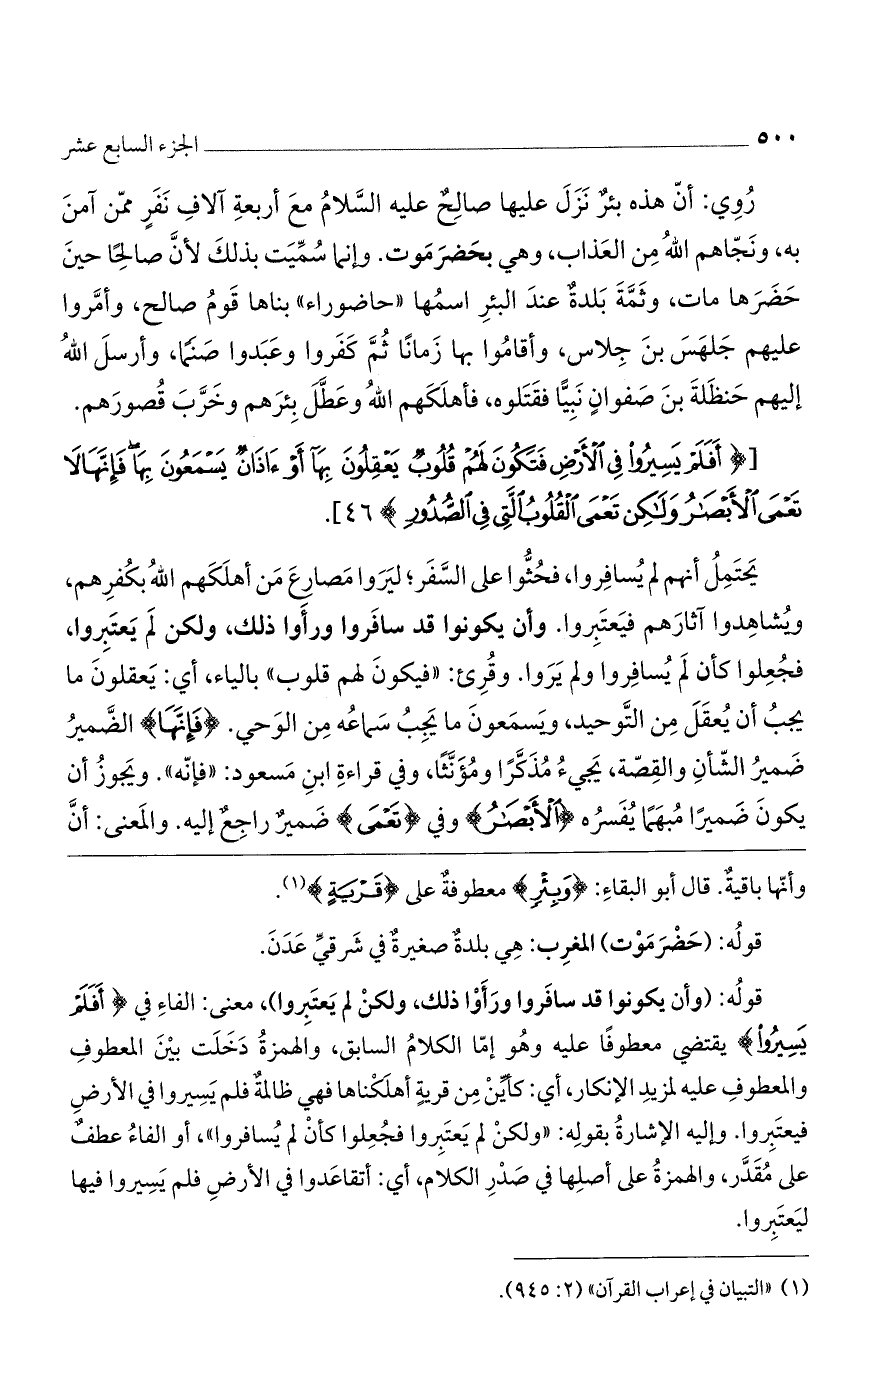 ٥٠٠ ــــــــــــــــــــ الجزء السابع عشر
رُوِي: أنّ هذه بئرٌ نَزَلَ عليها صالِحٌ عليه السَّلامُ مع أربعةِ آلافِ نَفَرٍ ممّن آمنَ
به، ونَجّاهم اللهُ مِن العَذاب، وهي بحَضرَموت. وإنما سُمِّيَت بذلكَ لأنَّ صالِحًا حينَ
حَضَرَها مات، وثَمَّةَ بَلدةٌ عندَ البئرِ اسمُها «حاضوراء» بناها قَومُ صالح، وأمَّروا
عليهم جَلهَسَ بنَ جِلاس، وأقامُوا بها زَمانًا ثُمَّ كَفَروا وعَبَدوا صَنَمًا، وأرسلَ اللهُ
إليهم حَنظَلةَ بنَ صَفوانٍ نَبِيًّا فقَتَلوه، فأهلَكَهم اللهُ وعَطَّلَ بِئرَهم وخَرَّبَ قُصورَهم.
[﴿ أَفَلَمْ يَسِيرُواْ فِي ٱلْأَرْضِ فَتَكُونَ لَهُمْ قُلُوبٌ يَعْقِلُونَ بِهَآ أَوْ ءَاذَانٌ يَسْمَعُونَ بِهَا ۖ فَإِنَّهَا لَا
تَعْمَى ٱلْأَبْصَٰرُ وَلَٰكِن تَعْمَى ٱلْقُلُوبُ ٱلَّتِي فِي ٱلصُّدُورِ ﴾ ٤٦].
يَحتَمِلُ أنهم لم يُسافِروا، فحُثُّوا على السَّفَر؛ ليَرَوا مَصارِعَ مَن أهلَكَهم اللهُ بكُفرِهم،
ويُشاهِدوا آثارَهم فيَعتَبِروا. وأن يكونوا قد سافَروا ورأَوا ذلك، ولكن لَم يَعتَبِروا،
فجُعِلوا كأن لَم يُسافِروا ولم يَرَوا. وقُرئ: «فيكونَ لهم قلوب» بالياء، أي: يَعقلونَ ما
يجبُ أن يُعقَلَ مِن التَّوحيد، ويَسمَعونَ ما يَجِبُ سَماعُه مِن الوَحي. ﴿فَإِنَّهَا﴾ الضَّميرُ
ضَميرُ الشَّأنِ والقِصّة، يَجيءُ مُذَكَّرًا ومُؤَنَّثًا، وفي قراءةِ ابنِ مَسعود: «فإنّه». ويَجوزُ أن
يكونَ ضَميرًا مُبهَمًا يُفَسرُه ﴿ٱلْأَبْصَٰرُ﴾ وفي ﴿تَعْمَى﴾ ضَميرٌ راجِعٌ إليه. والمَعنى: أنَّ
وأنّها باقيةٌ. قال أبو البقاءِ: ﴿وَبِئْرٍ﴾ معطوفةٌ على ﴿قَرْيَةٍ﴾(١).
قولُه: (حَضْرَمَوْت) المغرِب: هِي بلدةٌ صغيرةٌ في شَرقيِّ عَدَنَ.
قولُه: (وأن يكونوا قد سافَروا ورَأَوْا ذلك، ولكنْ لم يَعتَبِروا)، معنى: الفاءِ في ﴿ أَفَلَمْ
يَسِيرُواْ﴾ يقتضي معطوفًا عليه وهُو إمّا الكلامُ السابق، والهمزةُ دَخَلَت بيْنَ المعطوفِ
والمعطوفِ عليه لمزيدِ الإنكار، أي: كأيِّنْ مِن قريةٍ أهلَكْناها فهي ظالمةٌ فلم يَسِيروا في الأرضِ
فيعتَبِروا. وإليه الإشارةُ بقولِه: «ولكنْ لم يَعتَبِروا فجُعِلوا كأنْ لم يُسافروا»، أو الفاءُ عطفٌ
على مُقَدَّر، والهمزةُ على أصلِها في صَدْرِ الكلام، أي: أتقاعَدوا في الأرضِ فلم يَسِيروا فيها
ليَعتَبِروا.
(١) «التبيان في إعراب القرآن» (٢: ٩٤٥).